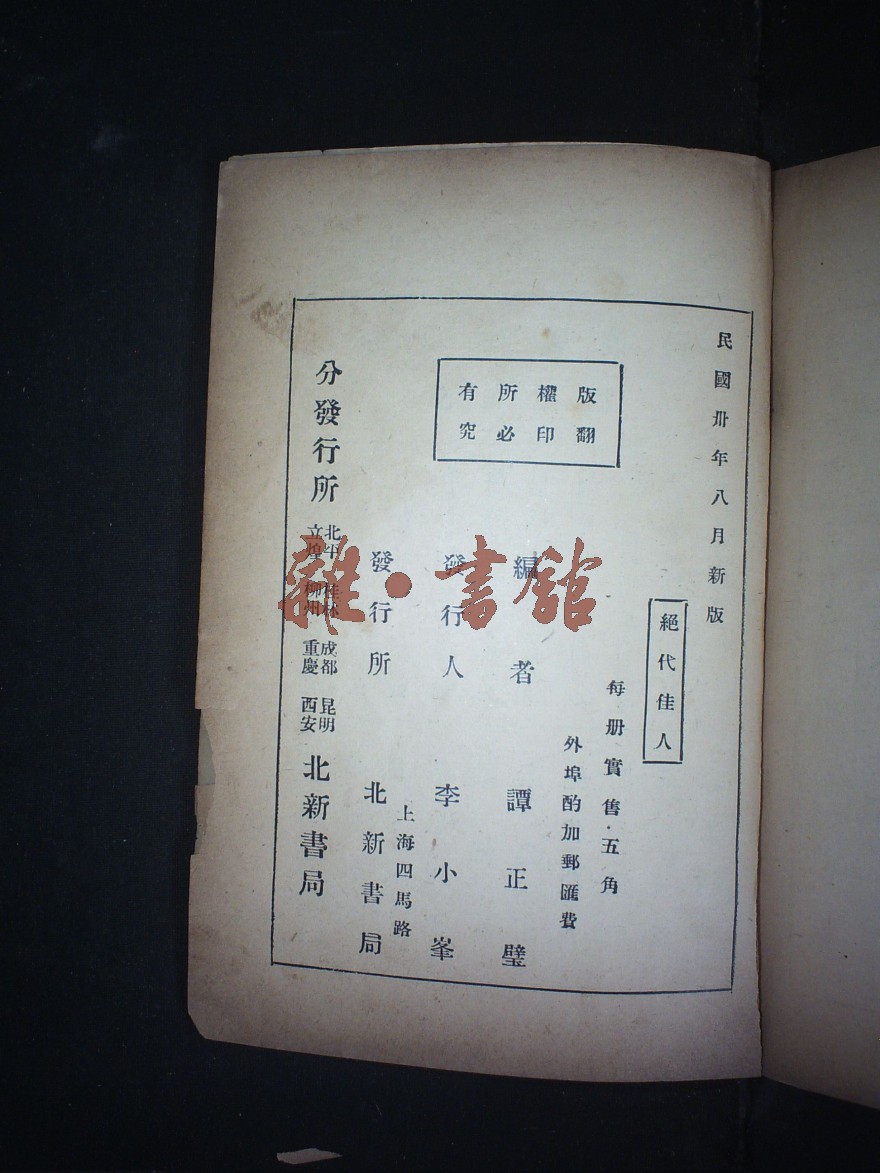 民國卅年八月新版
絕代佳人
每册實售·五角
外埠酌加郵匯費
版權所有
翻印必究
編者 譚正璧
發行人 李小峯
上海四馬路
發行所 北新書局
分發行所
北平 桂林 成都 昆明
立煌 柳州 重慶 西安
北新書局
雜·書館